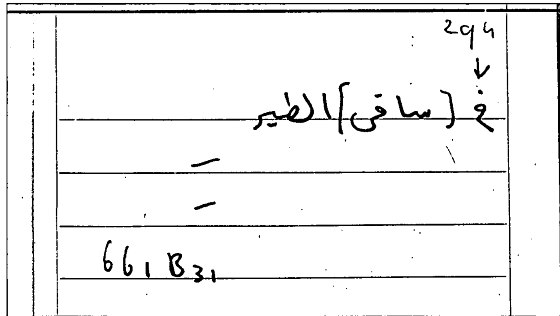 294
↓
في [ساقى] الطير
–
–
661 B31